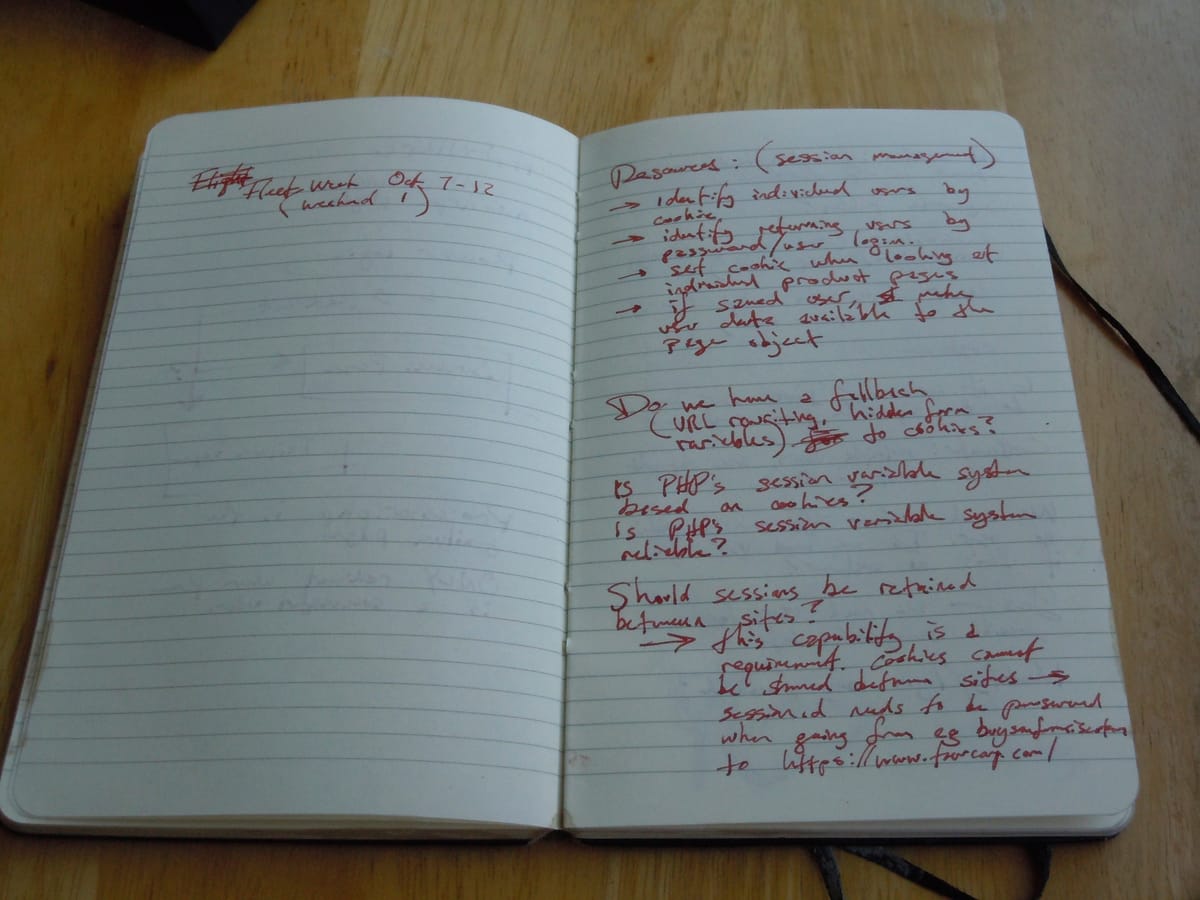 Fleet Week Oct 7-12
(weekend 1)
Resources: (session management)
→ Identify individual users by
cookie.
→ identify returning users by
password/user login.
→ set cookie when looking at
individual product pages
→ if saved user, make
user data available to the
page object
Do we have a fallback
(URL rewriting, hidden form
variables) to cookies?
Is PHP's session variable system
based on cookies?
Is PHP's session variable system
reliable?
Should sessions be retained
between sites?
→ this capability is a
requirement. Cookies cannot
be shared between sites →
session.id needs to be
when going from eg
to https://www.